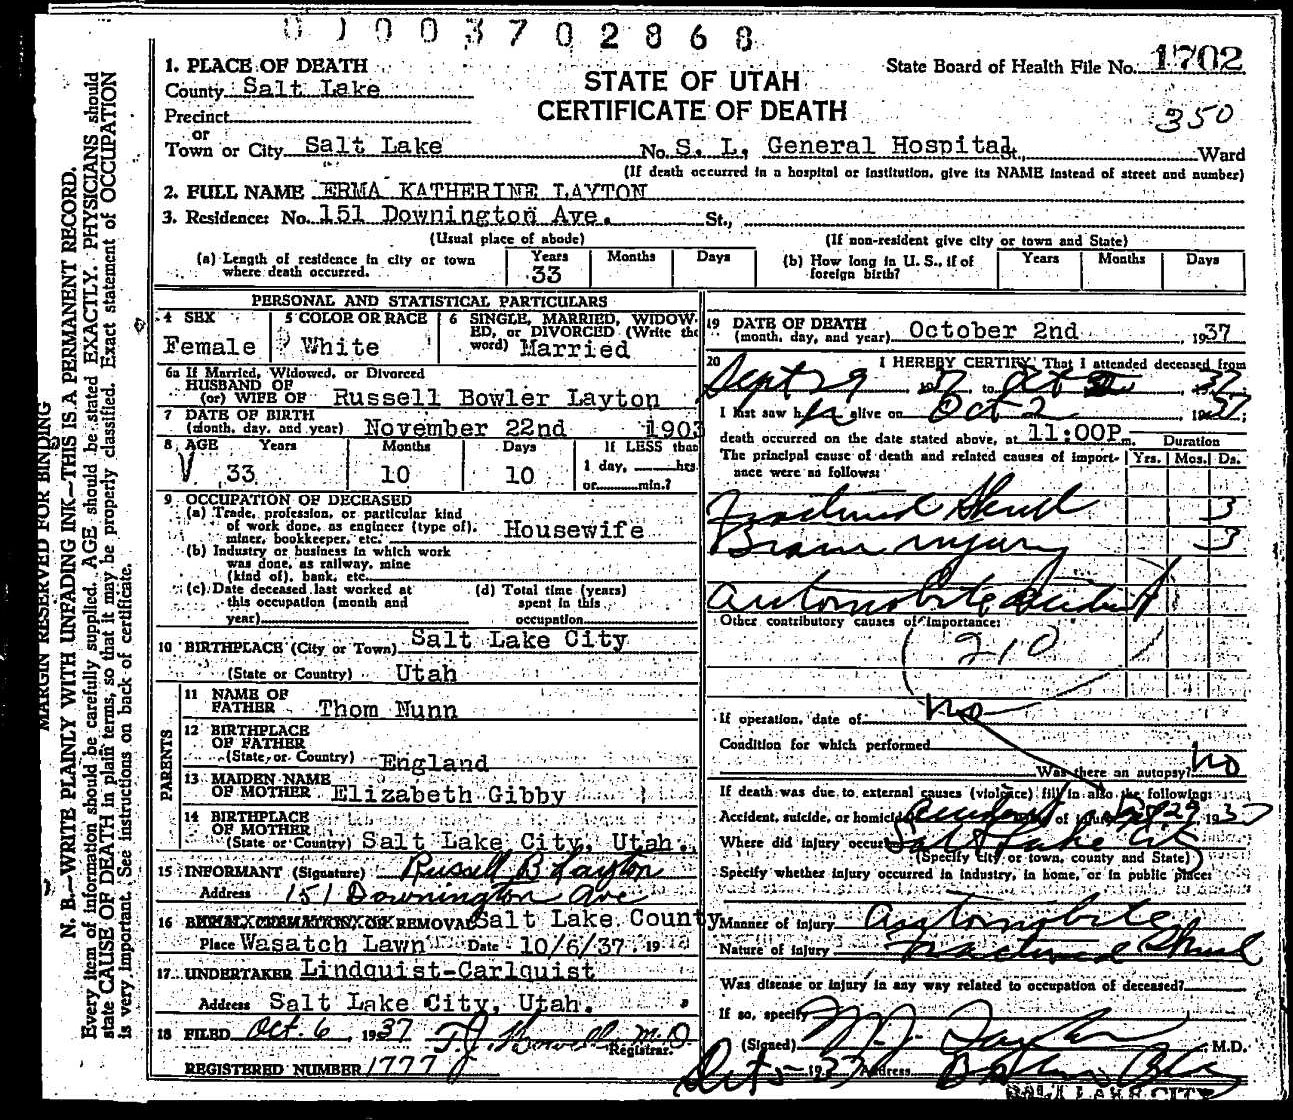 0 1 0 0 3 7 0 2 8 6 8
1. PLACE OF DEATH
STATE OF UTAH
CERTIFICATE OF DEATH
State Board of Health File No. 1702
350
County Salt Lake
Precinct
or
Town or City Salt Lake No. S. L. General Hospital St., Ward
(If death occurred in a hospital or institution, give its NAME instead of street and number)
2. FULL NAME ERMA KATHERINE LAYTON
3. Residence: No. 151 Downington Ave. St.,
(Usual place of abode) (If non-resident give city or town and State)
(a) Length of residence in city or town where death occurred. Years 33 Months Days
(b) How long in U. S., if of foreign birth? Years Months Days
PERSONAL AND STATISTICAL PARTICULARS
4 SEX Female
5 COLOR OR RACE White
6 SINGLE, MARRIED, WIDOWED, or DIVORCED (Write the word) Married
6a If Married, Widowed, or Divorced
HUSBAND OF
(or) WIFE OF Russell Bowler Layton
7 DATE OF BIRTH
(month, day, and year) November 22nd 1903
8 AGE Years Months Days If LESS than
33 10 10 1 day, hrs.
or min.?
9 OCCUPATION OF DECEASED
(a) Trade, profession, or particular kind
of work done, as engineer (type of),
miner, bookkeeper, etc. Housewife
(b) Industry or business in which work
was done, as railway, mine
(kind of), bank, etc.
(c) Date deceased last worked at
this occupation (month and
year)
(d) Total time (years)
spent in this
occupation
10 BIRTHPLACE (City or Town) Salt Lake City
(State or Country) Utah
PARENTS
11 NAME OF
FATHER Thom Nunn
12 BIRTHPLACE
OF FATHER
(State or Country) England
13 MAIDEN NAME
OF MOTHER Elizabeth Gibby
14 BIRTHPLACE
OF MOTHER
(State or Country) Salt Lake City, Utah.
15 INFORMANT (Signature) Russell B Layton
Address 151 Downington Ave
16 BURIAL, CREMATION, OR REMOVAL Salt Lake County
Place Wasatch Lawn Date 10/6/37 19
17 UNDERTAKER Lindquist-Carlquist
Address Salt Lake City, Utah.
18 FILED Oct. 6, 1937 T.J. Howell M.D
Registrar.
REGISTERED NUMBER 1777
19 DATE OF DEATH
(month, day, and year) October 2nd , 1937
20 I HEREBY CERTIFY, That I attended deceased from
Sept 29 1937 to Oct 2, 37
I last saw h alive on Oct 2 1937
death occurred on the date stated above, at 11:00P m. Duration
The principal cause of death and related causes of importance were as follows: Yrs. Mos. Ds.
Fractured Skull 3
Brain injury 3
Automobile Accident
Other contributory causes of importance:
210
If operation, date of no
Condition for which performed
Was there an autopsy? no
If death was due to external causes (violence) fill in also the following:
Accident, suicide, or homicide accident of injury Sept 29 1937
Where did injury occur Salt Lake City
(Specify city or town, county and State)
Specify whether injury occurred in industry, in home, or in public place:
Manner of injury Automobile
Nature of injury Fractured Skull
Was disease or injury in any way related to occupation of deceased?
If so, specify
(Signed) M.D.
Oct 5 1937 Address
SALT LAKE CITY
MARGIN RESERVED FOR BINDING
N. B.—WRITE PLAINLY WITH UNFADING INK—THIS IS A PERMANENT RECORD.
Every item of information should be carefully supplied. AGE should be stated EXACTLY. PHYSICIANS should
state CAUSE OF DEATH in plain terms, so that it may be properly classified. Exact statement of OCCUPATION
is very important. See instructions on back of certificate.